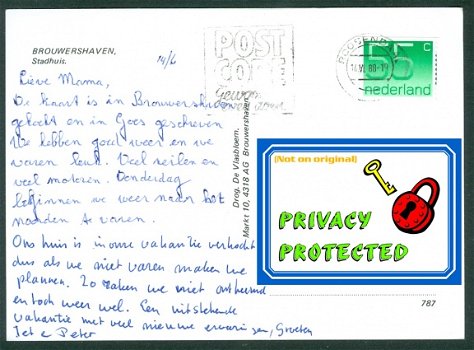 BROUWERSHAVEN,
Stadhuis.
14/6
Lieve Mama,
De kaart is in Brouwershaven
gekocht en in Goes geschreven
We hebben goed weer en we
varen leuk. Veel zeilen en
veel motoren. Donderdag
beginnen we weer naar het
noorden te varen.
Ons huis is in onze vakantie verkocht
dus als we niet varen maken we
plannen. Zo raken we niet ontheemd
en toch weer wel. Een uitstekende
vakantie met veel nieuwe ervaringen, Groeten
Jet e Peter
POST
CODE
gewoon
even doen
ROOSENDAAL
14 VI 88-19
55 C
nederland
Drog. De Vlasbloem,
Markt 10, 4318 AG Brouwershaven
(Not on original)
PRIVACY
PROTECTED
787